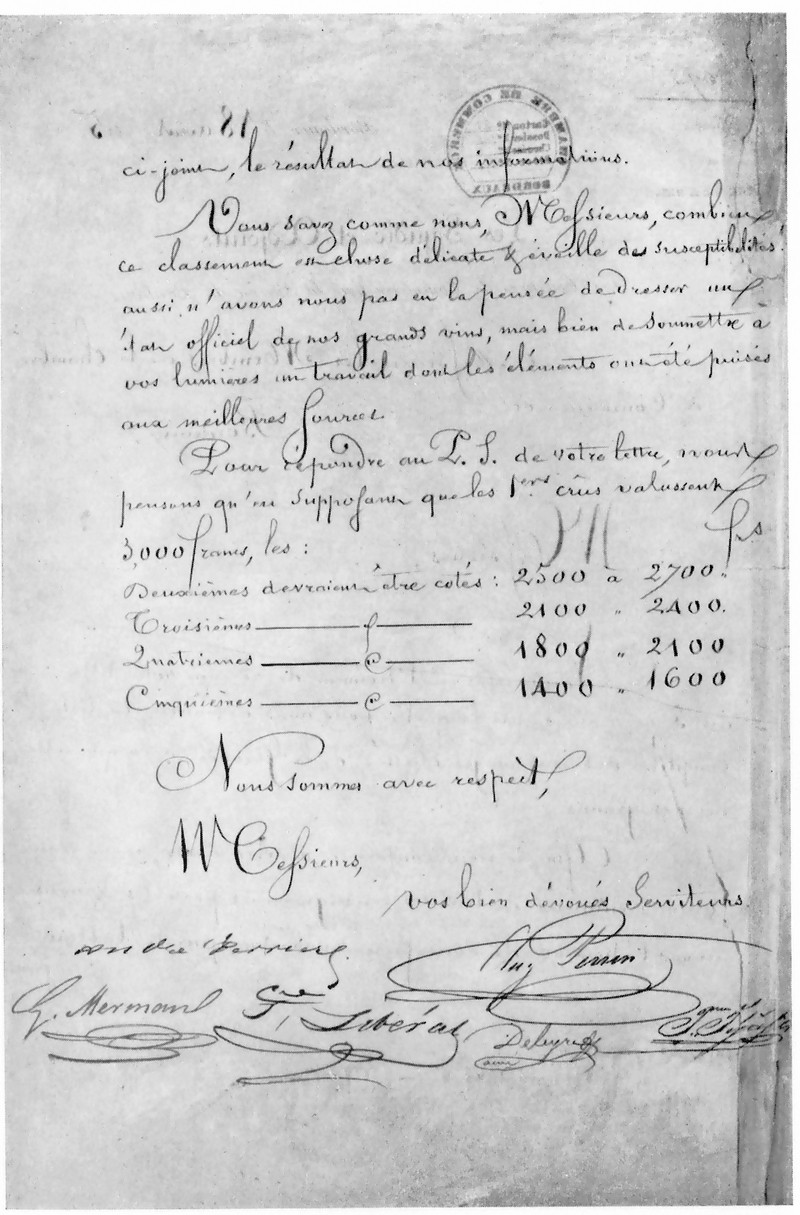 ci-joint, le résultat de nos informations.
Vous savez comme nous, Messieurs, combien
ce classement est chose délicate & éveille des susceptibilités;
aussi n'avons nous pas eu la pensée de dresser un
état officiel de nos grands vins, mais bien de soumettre à
vos lumières un travail dont les éléments ont été puisés
aux meilleures sources.
Pour répondre au P.S. de votre lettre, nous
pensons qu'en supposant que les 1ers crûs valussent
3,000 francs, les : frs
Deuxièmes devraient être cotés : 2500 à 2700 "
Troisièmes 2100 " 2400.
Quatrièmes 1800 " 2100
Cinquièmes 1400 " 1600
Nous sommes avec respect,
Messieurs,
vos bien dévoués Serviteurs.
Aug Perrin
G. Mermann
Libéral